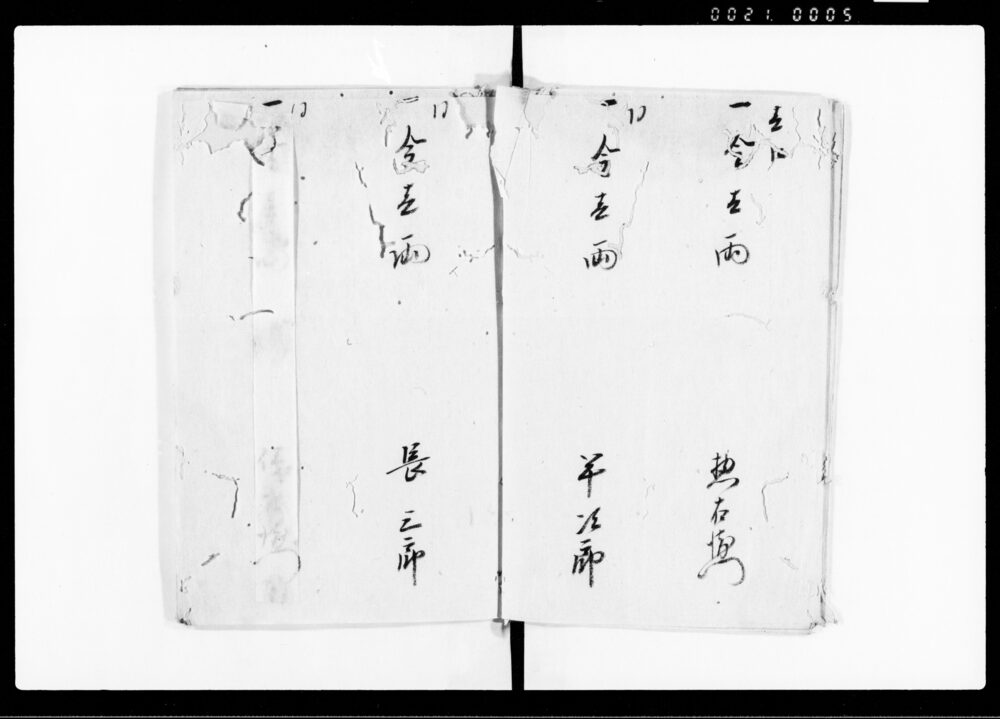 0021. 0005
一 金壱両 惣右衛門
一 金壱両 半次郎
一 金壱両 長三郎
一